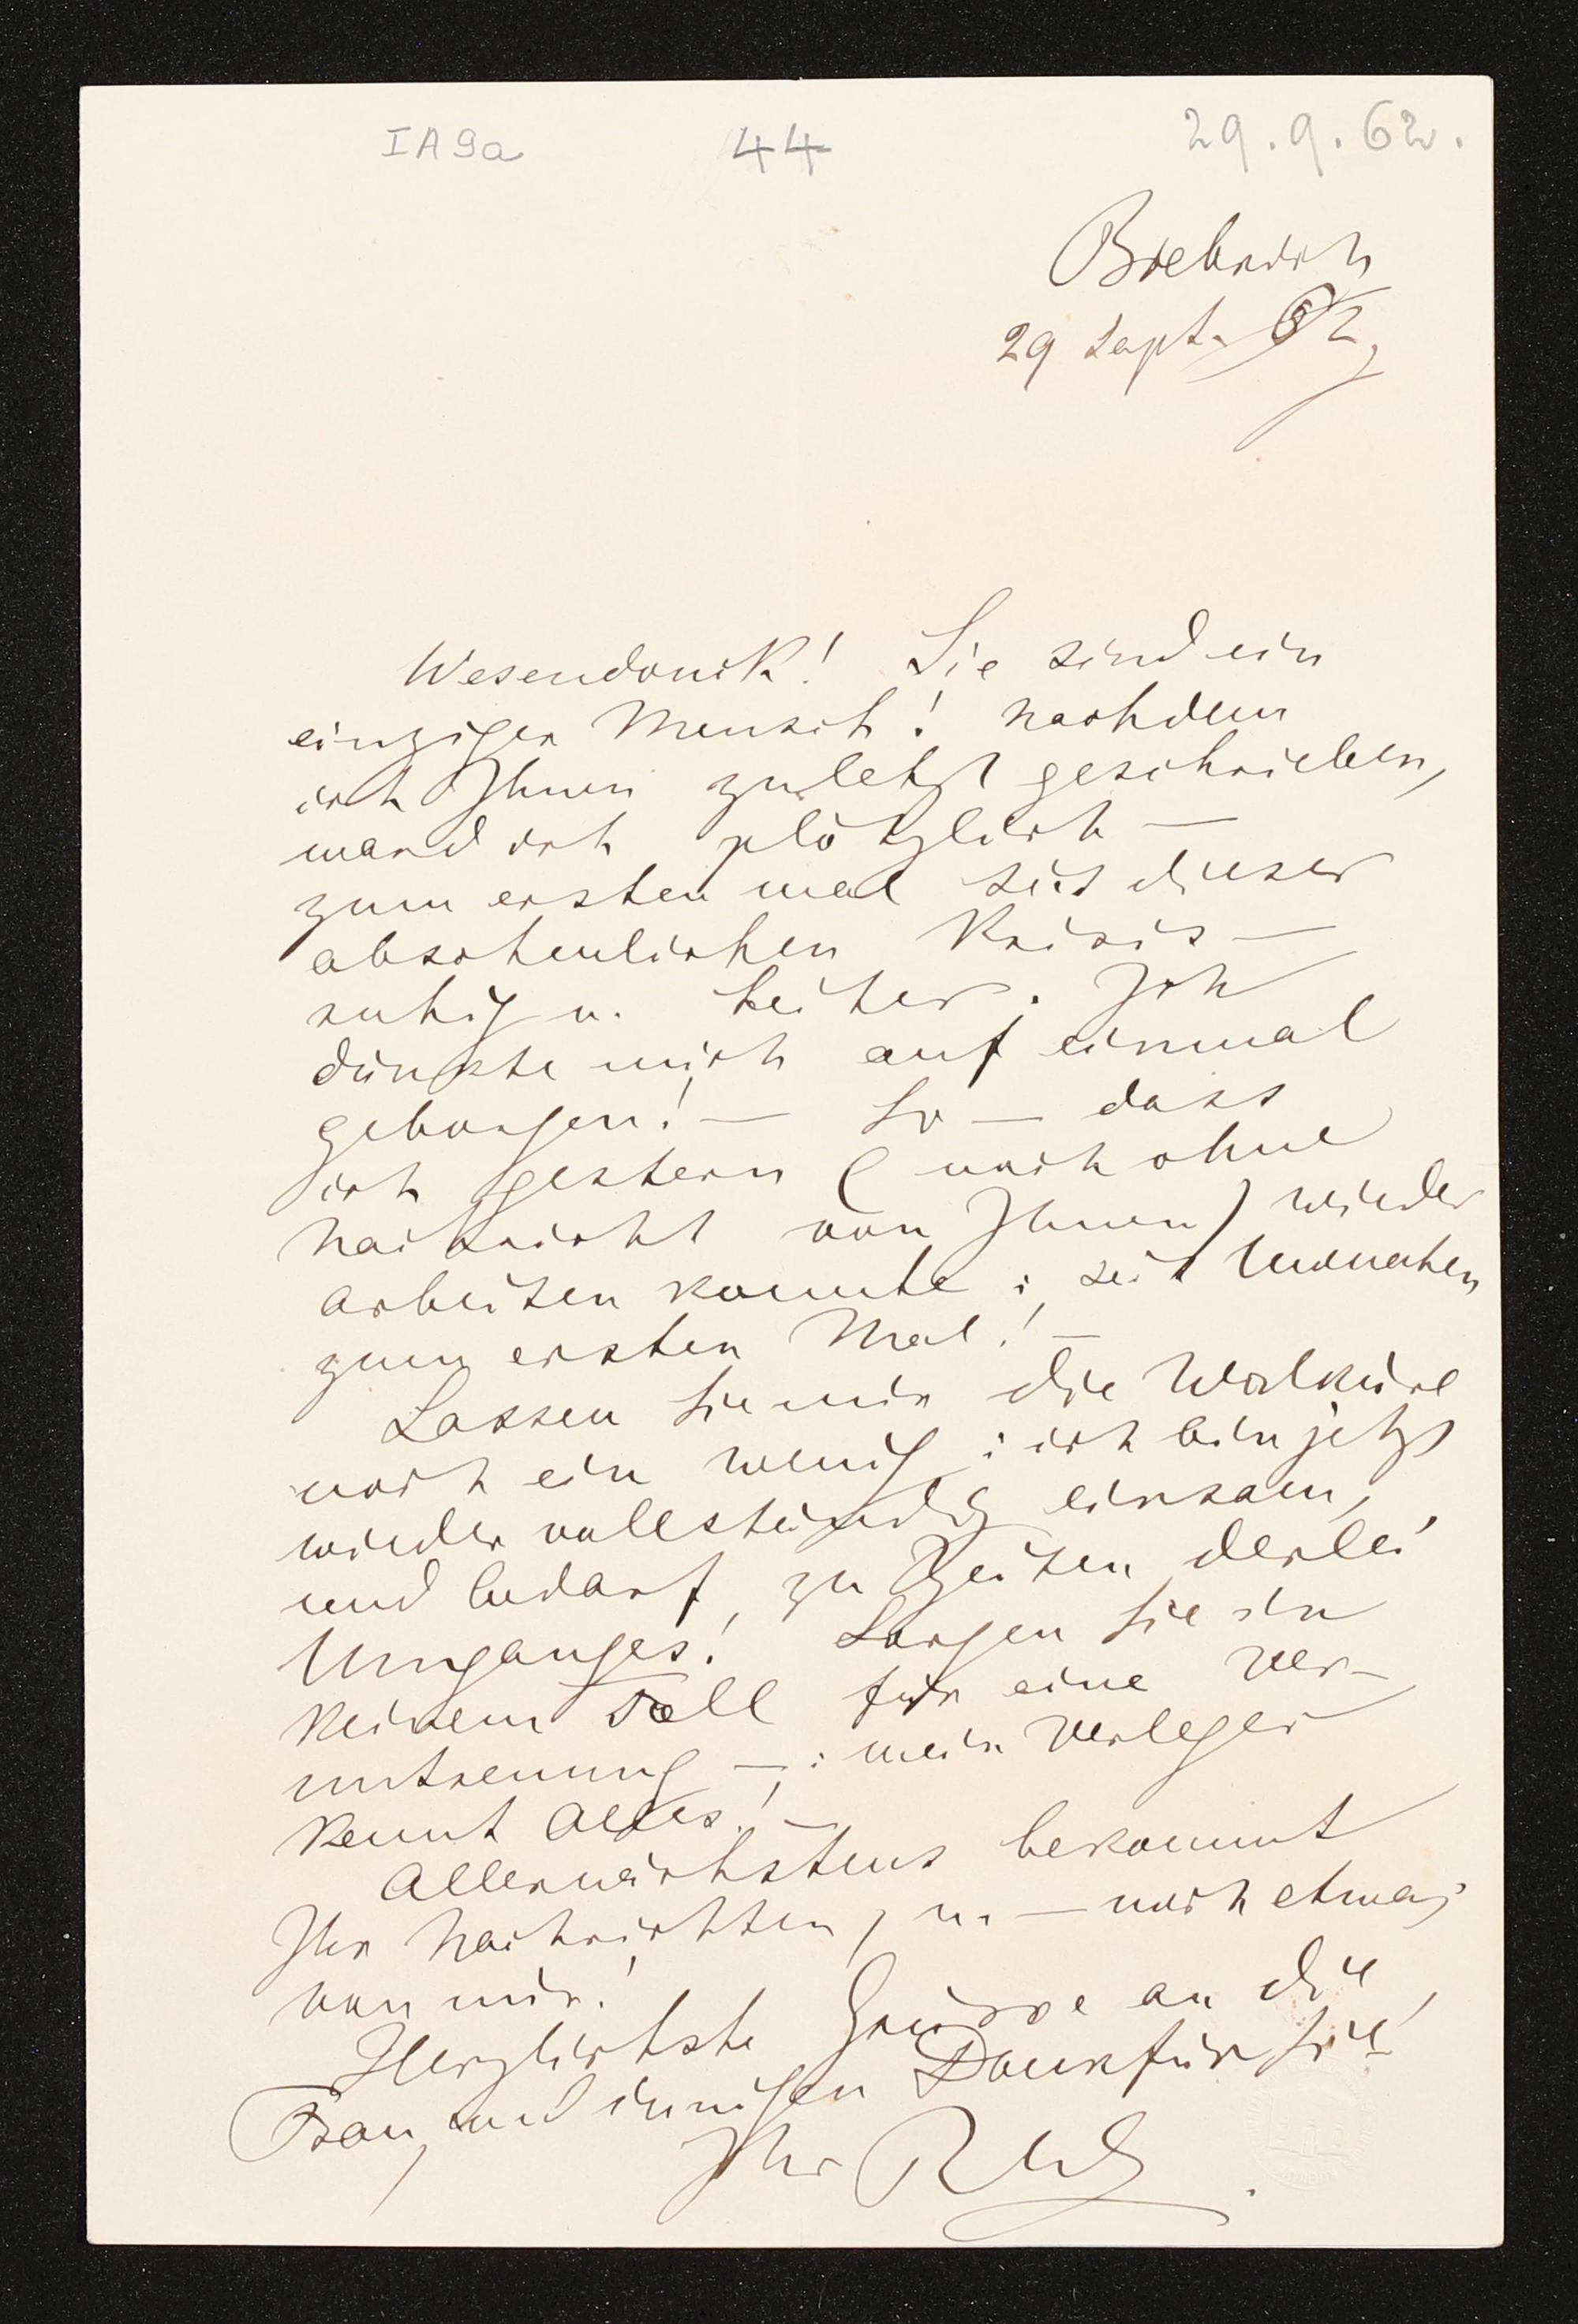 IA9a 44 29.9.62.
Biebrich
29 Sept. 62,
Wesendonck! Sie sind ein
einziger Mensch! Nachdem
ich Ihnen zuletzt geschrieben,
ward ich plötzlich —
zum ersten mal seit dieser
abscheulichen Krisis —
ruhig u. heiter. Ich
dünkte mich auf einmal
geborgen! — So — dass
ich gestern (noch ohne
Nachricht von Ihnen) wieder
arbeiten konnte: seit Monaten
zum ersten Mal! —
Lassen Sie mir die Walküre
noch ein wenig: ich bin jetzt
wieder vollständig einsam,
und bedarf zu Zeiten derlei
Umganges! Sorgen Sie in
keinem Fall für eine Ver-
untreuung —: mein Verleger
kennt Alles! —
Allernächstens bekommt
Ihr Nachrichten, u. — noch etwas
von mir!
Herzlichste Grüsse an die
Frau, und innigen Dank für Sie!
Ihr RW.